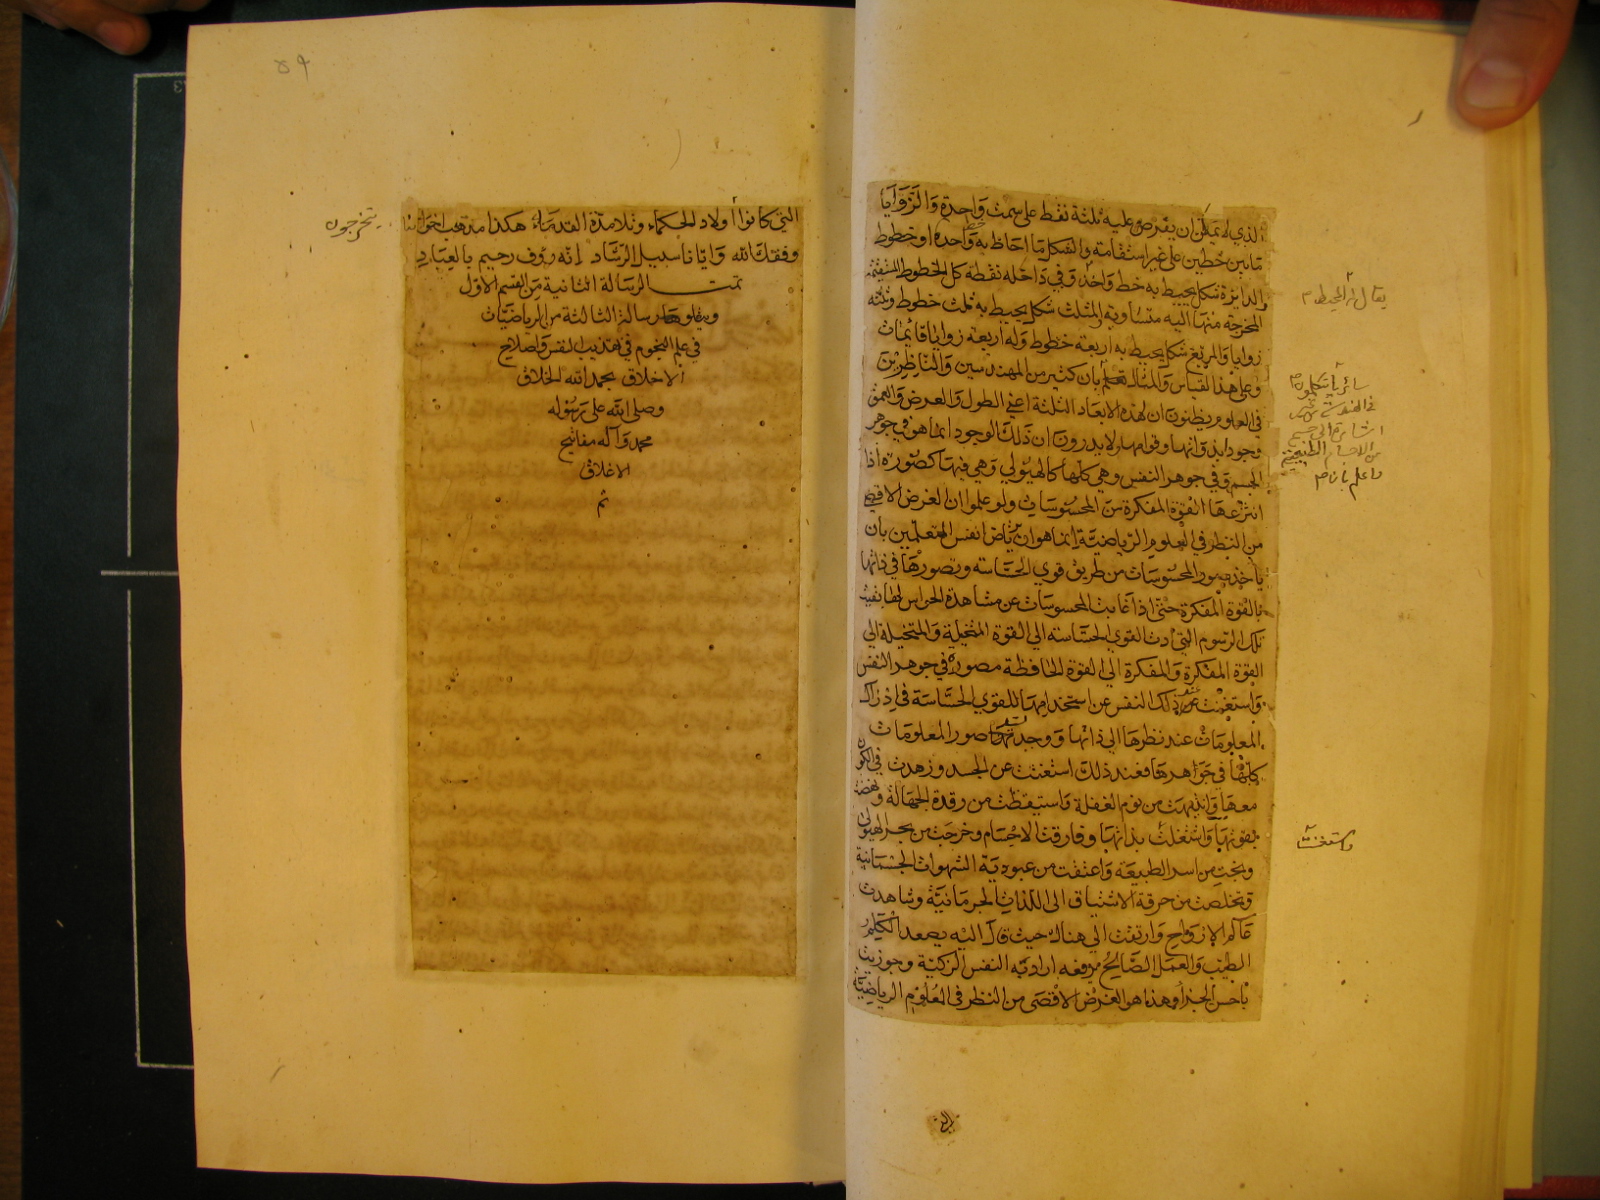 الذي لا يمكن ان يفرض عليه ثلثة نقط على سمت واحدة والزوايا
ما بين خطين على غير استقامة والشكل ما احاط به خط واحد او خطوط
والدايرة شكل يحيط به خط واحد وفي داخله نقطة كل الخطوط المستقيمة
المخرجة منها اليه متساوية والمثلث شكل يحيط به ثلث خطوط وثلثة
زوايا والمربع شكل يحيط به اربعة خطوط وله اربعة زوايا قايمات
وعلى هذا القياس والمثال تعلم بان كثير من المهندسين والناظرين
في العلوم يظنون ان لهذه الابعاد الثلثة اعني الطول والعرض والعمق
وجود ابذواتها وقوامها ولا يدرون ان ذلك الوجود انما هو في جوهر
الجسم وفي جوهر النفس وهي كلها كالهيولي وهي فيها كصورة اذا
انتزعها القوة المفكرة من المحسوسات ولو علموا ان الغرض الاقصى
من النظر في العلوم الرياضية انما هو ان يتاض انفس المتعلمين بان
ياخذ صور المحسوسات من طريق قوي الحساسه وتصورها في ذاتها
بالقوة المفكرة حتى اذا غابت المحسوسات عن مشاهدة الحواس لها بقيت
تلك الرسوم التي أدت القوي الحساسه الي القوة المتخيلة والمتخيلة الي
القوة المفكرة والمفكرة الي القوة الحافظة مصورة في جوهر النفس
واستغنت عند ذلك النفس عن استخدامها للقوي الحساسة في ادراك
المعلومات عند نظرها الي ذاتها ووجدت صور المعلومات
كلها في جواهرها فعند ذلك استغنت عن الجسد وزهدت في الكون
معها وانتبهت من نوم الغفلة واستيقظت من رقدة الجهالة ونهضة
بقوتها واشتغلت بذاتها وفارقت الاجسام وخرجت من بحر الهيولي
ونجت من اسر الطبيعة واعتقت من عبودية الشهوات الجسمانية
وتخلصت من حرقة الاشتياق الى اللذات الجرمانية وشاهدت
عالم الارواح وارتقت الي هناك حيث قال اليه يصعد الكلم
الطيب والعمل الصالح يرفعه اراد به النفس الزكية وجوزيت
باحسن الجزاء وهذا هو الغرض الاقصى من النظر في العلوم الرياضية
يقال له المحيط
سائر ما يتكلمون
في الهندسة
اشارة الى جسم
من الاجسام الطبيعية
واعلم بان
واستغنت
التي
٥٩
التي كانوا أولاد الحكماء وتلامذة القدماء هكذا مذهب اخواننا
يتخرجون
وفقك الله وايانا سبيل الرشاد إنه رؤف رحيم بالعباد
تمت الرسالة الثانية من القسم الاول
ويتلوها رسالة الثالثة من الرياضيات
في علم النجوم في تهذيب النفس واصلاح
الاخلاق بحمد الله الخلاق
وصلى الله على رسوله
محمد وآله مفاتيح
الاغلاق
تم